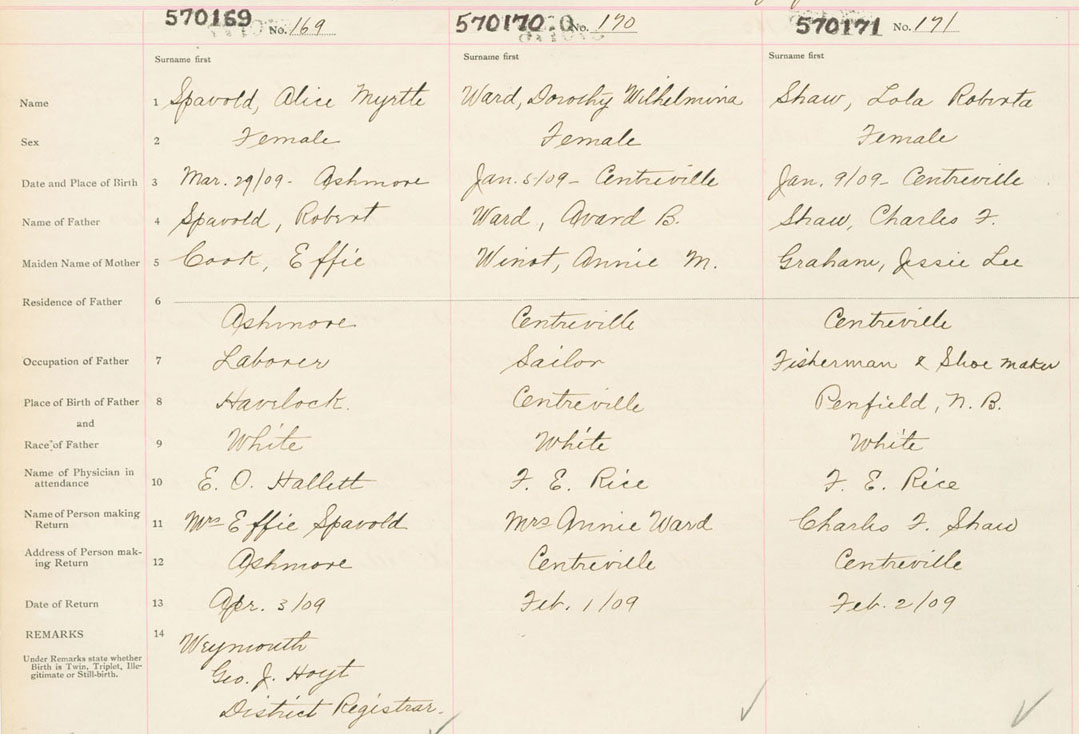 570169 No. 169 570170 No. 170 570171 No. 171
Surname first Surname first Surname first
Name 1 Spavold, Alice Myrtle Ward, Dorothy Wilhelmina Shaw, Lola Roberta
Sex 2 Female Female Female
Date and Place of Birth 3 Mar. 29/09 - Ashmore Jan. 5/09 - Centreville Jan. 9/09 - Centreville
Name of Father 4 Spavold, Robert Ward, Avard B. Shaw, Charles F.
Maiden Name of Mother 5 Cook, Effie Winot, Annie M. Graham, Jessie Lee
Residence of Father 6
Ashmore Centreville Centreville
Occupation of Father 7 Laborer Sailor Fisherman & Shoe maker
Place of Birth of Father 8 Havelock. Centreville Penfield, N. B.
and
Race of Father 9 White White White
Name of Physician in
attendance 10 E. O. Hallett F. E. Rice F. E. Rice
Name of Person making
Return 11 Mrs Effie Spavold Mrs Annie Ward Charles F. Shaw
Address of Person mak-
ing Return 12 Ashmore Centreville Centreville
Date of Return 13 Apr. 3/09 Feb. 1/09 Feb. 2/09
REMARKS 14 Weymouth
Under Remarks state whether
Birth is Twin, Triplet, Ille-
gitimate or Still-birth.
Geo. J. Hoyt
District Registrar.